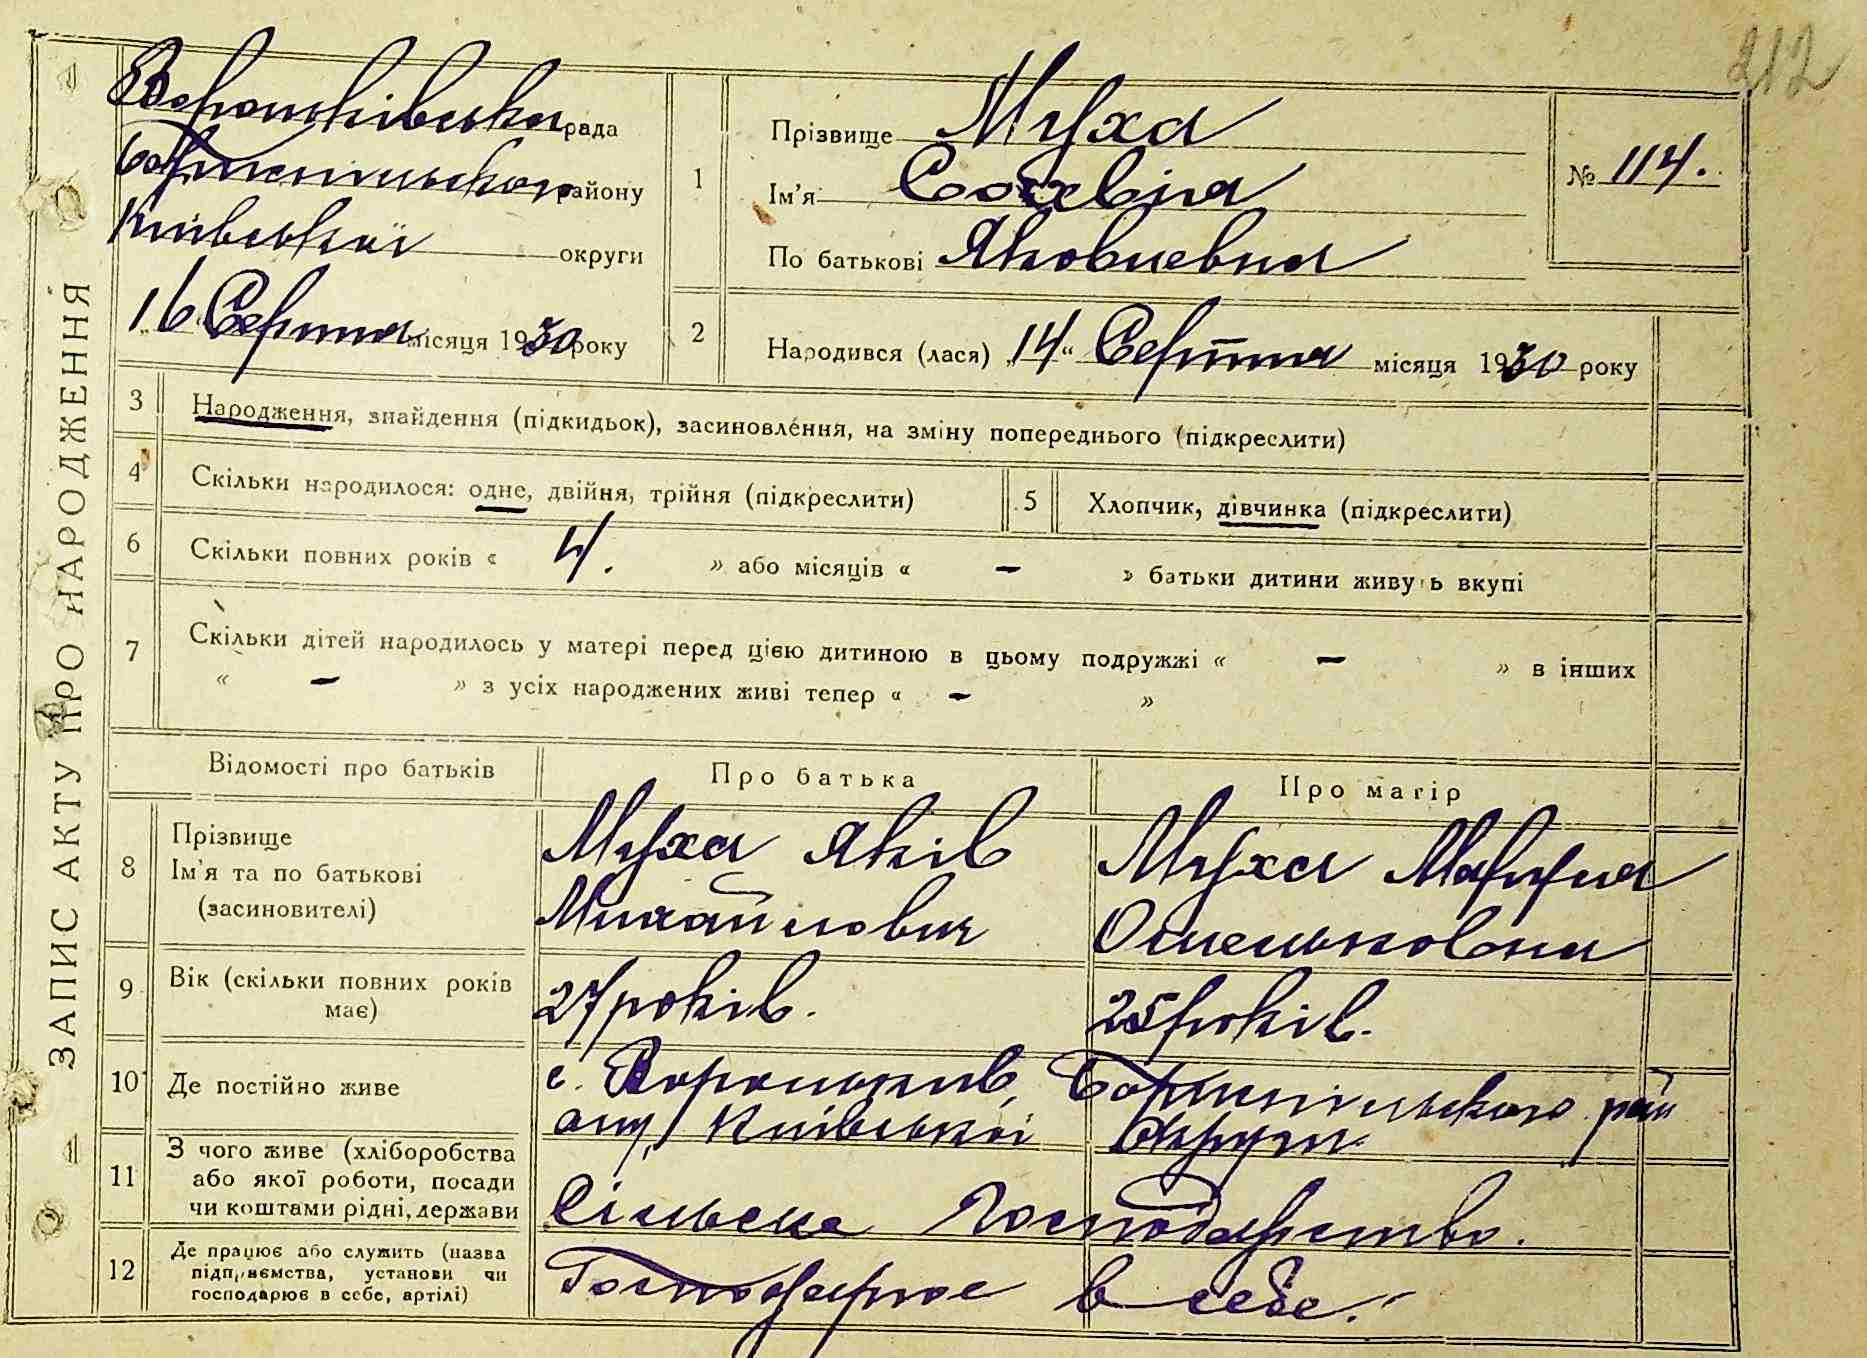 212
ЗАПИС АКТУ ПРО НАРОДЖЕННЯ
Вороньківська рада
Бориспільского району
Київської округи
"16" Серпня місяця 1930 року
1
Прізвище Муха
Ім'я Софія
По батькові Яковлевна
№ 114.
2
Народився (лася) "14" Серпня місяця 1930 року
3 Народження, знайдення (підкидьок), засиновлéння, на зміну попереднього (підкреслити)
4 Скільки народилося: одне, двійня, трійня (підкреслити)
5 Хлопчик, дівчинка (підкреслити)
6 Скільки повних років « 4. » або місяців « – » батьки дитини живуть вкупі
7 Скільки дітей народилось у матері перед цією дитиною в цьому подружжі « – » в інших
« – » з усіх народжених живі тепер « – »
Відомості про батьків Про батька Про матір
8 Прізвище
Ім'я та по батькові
(засиновителі)
Муха Яків
Михайлович
Муха Марфа
Омельковна
9 Вік (скільки повних років
має)
27 років.
25 років.
10 Де постійно живе
с. Вороньків, Бориспільского рай
ону, Київської Округи
11 З чого живе (хліборобства
або якої роботи, посади
чи коштами рідні, держави
Сільське Господарство.
12 Де працює або служить (назва
підприємства, установи чи
господарює в себе, артілі)
Господарює в себе.